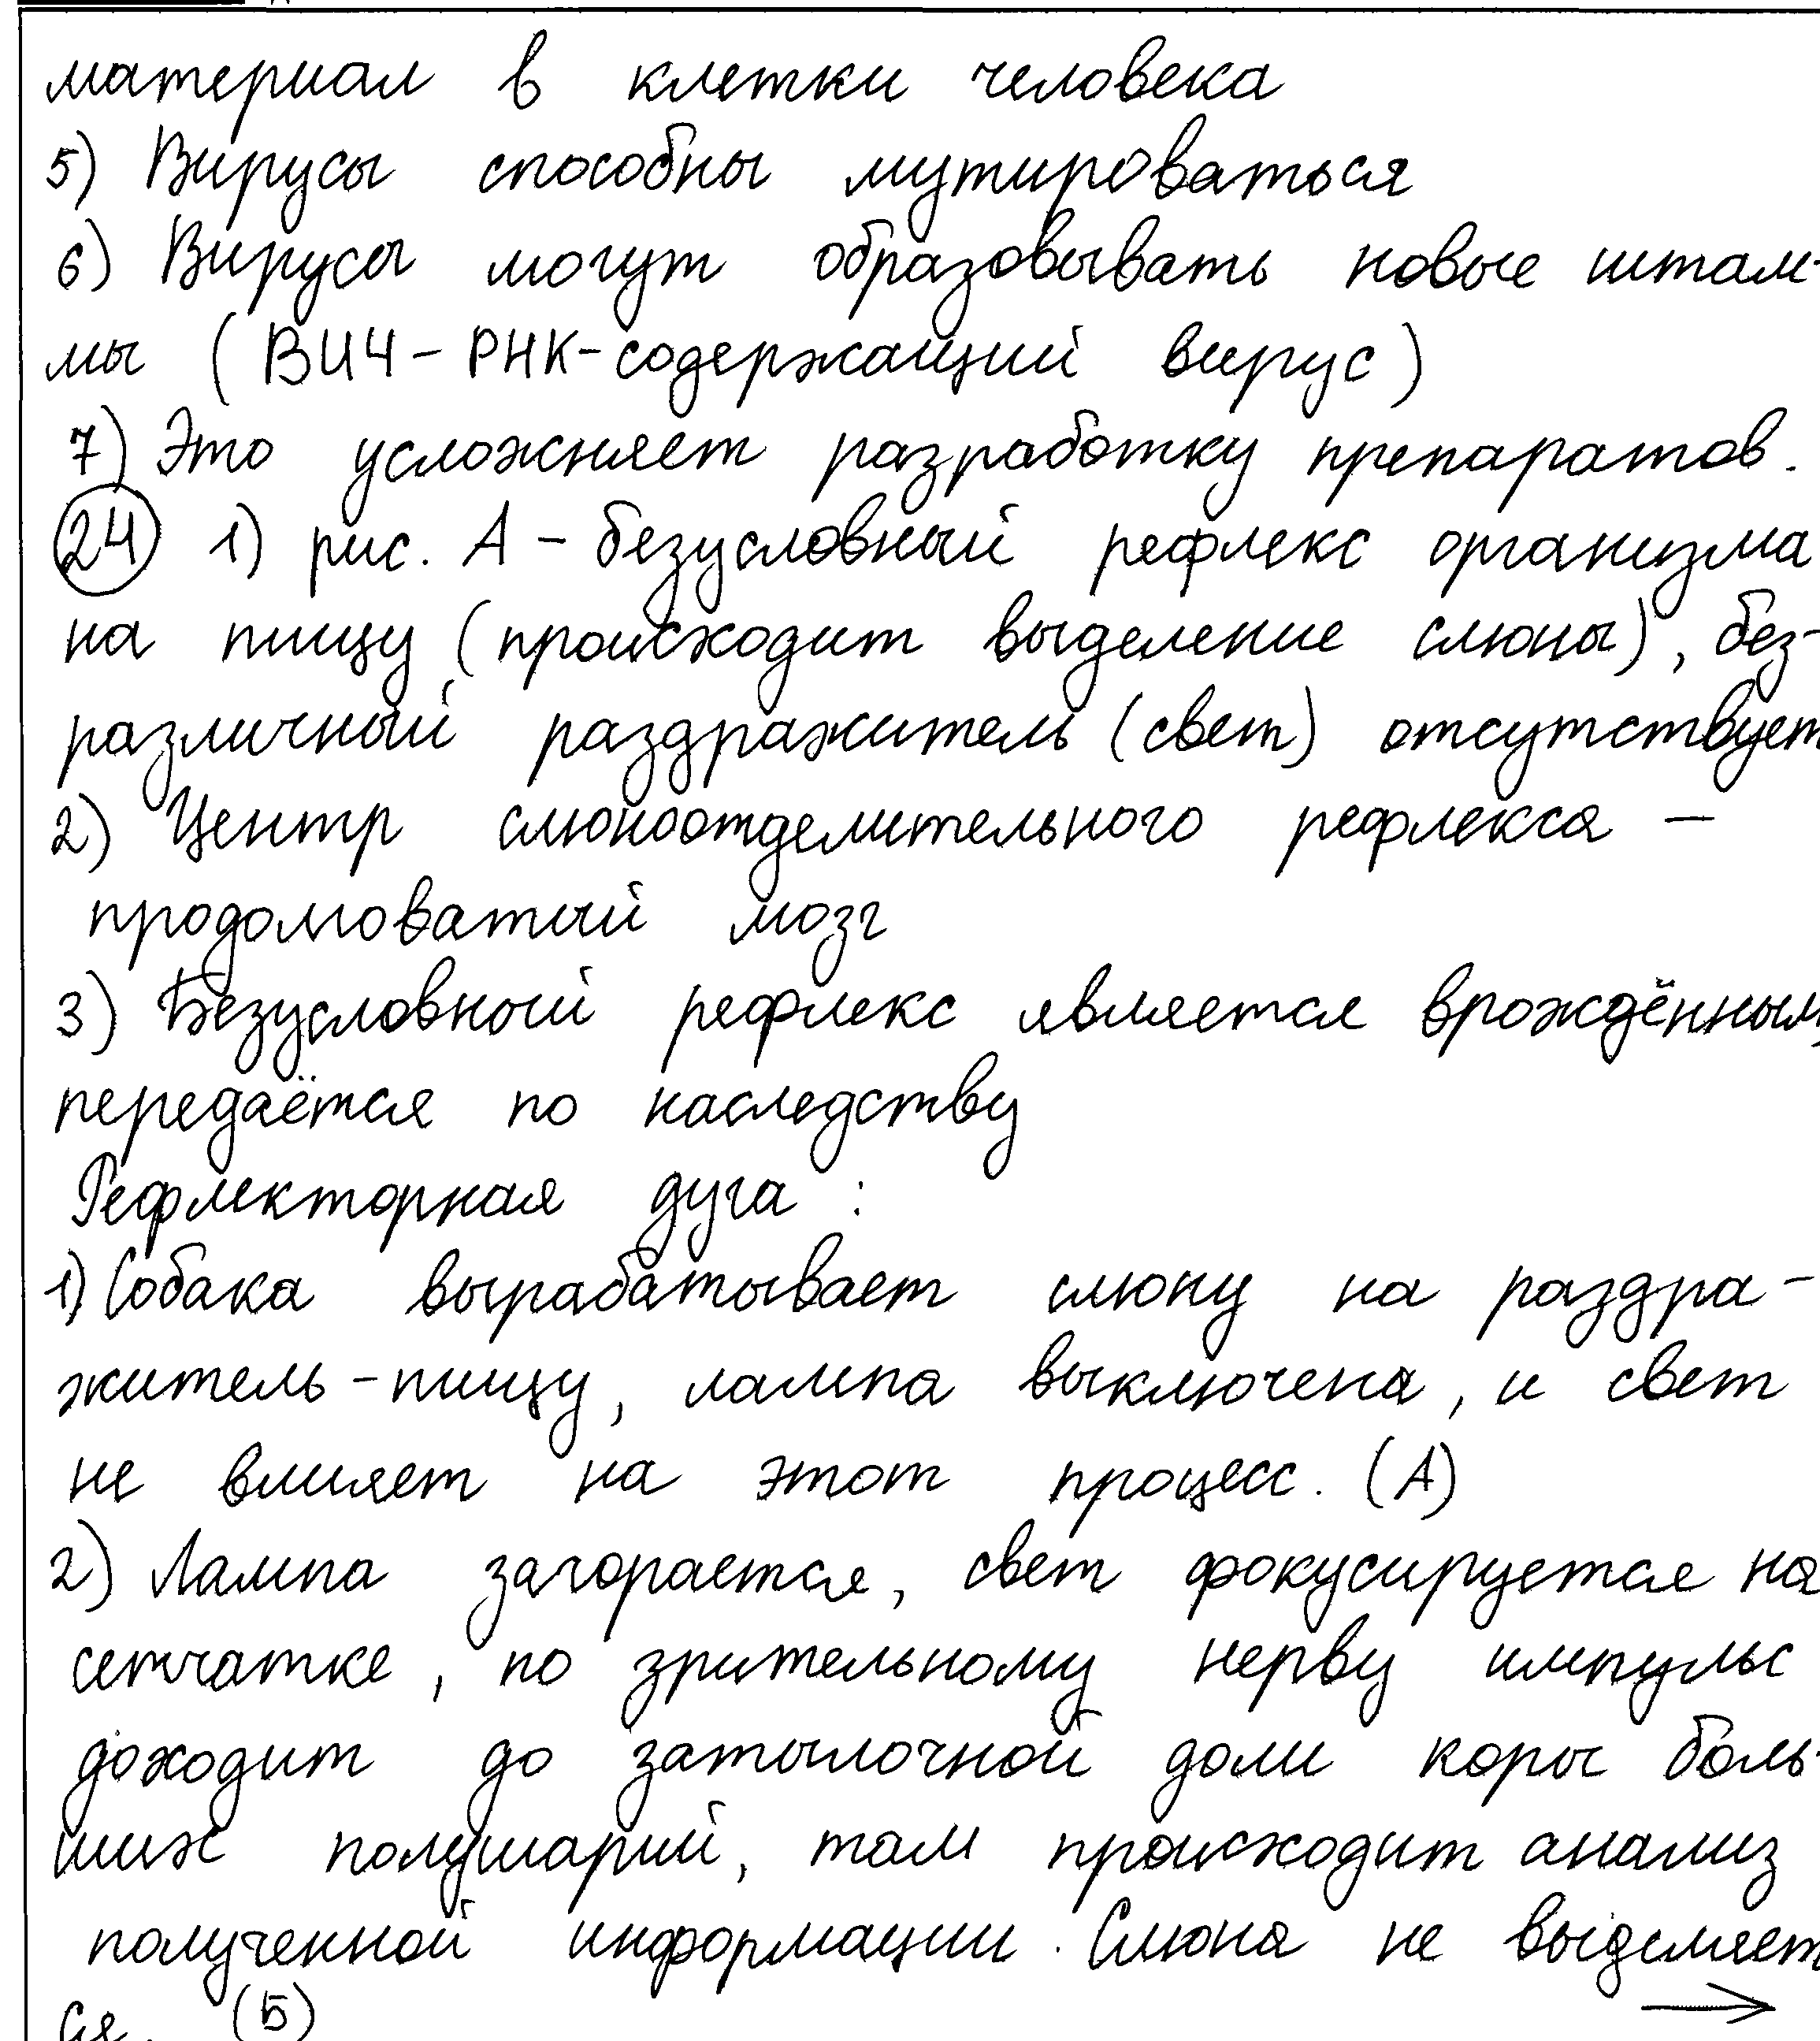 материал в клетки человека
5) Вирусы способны мутироваться
6) Вирусы могут образовывать новые штам-
мы (ВИЧ - РНК-содержащий вирус)
7) Это усложняет разработку препаратов.
24 1) рис. А - безусловный рефлекс организма
на пищу (происходит выделение слюны), без-
различный раздражитель (свет) отсутствует
2) Центр слюноотделительного рефлекса —
продолговатый мозг
3) Безусловный рефлекс является врождённым,
передаётся по наследству
Рефлекторная дуга :
1) Собака вырабатывает слюну на раздра-
житель - пищу, лампа выключена, и свет
не влияет на этот процесс. (А)
2) Лампа загорается, свет фокусируется на
сетчатке, по зрительному нерву импульс
доходит до затылочной доли коры боль-
ших полушарий, там происходит анализ
полученной информации. Слюна не выделяет
ся. (Б) →